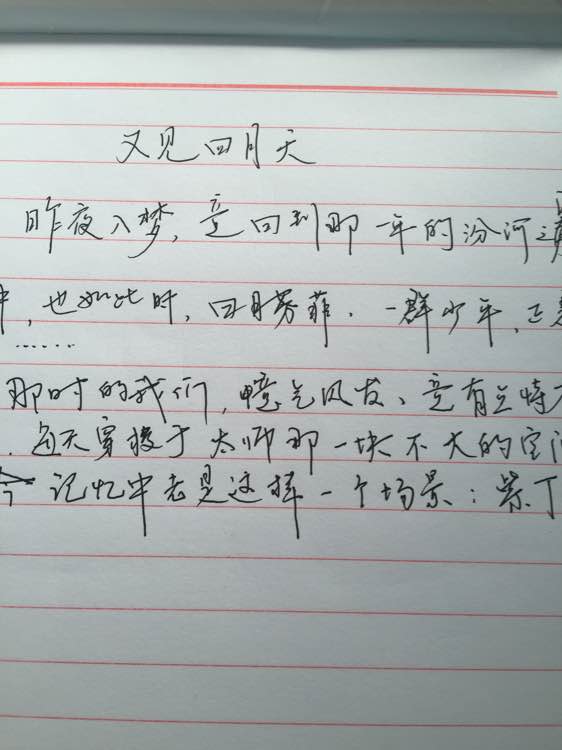 又见四月天
昨夜入梦,竟回到那一年的汾河之
,也如此时,四月芳菲.一群少年,正
......
那时的我们,意气风发、竟有些
.每天穿梭于太师那一块不大的空间
记忆中老是这样一个场景:紫丁